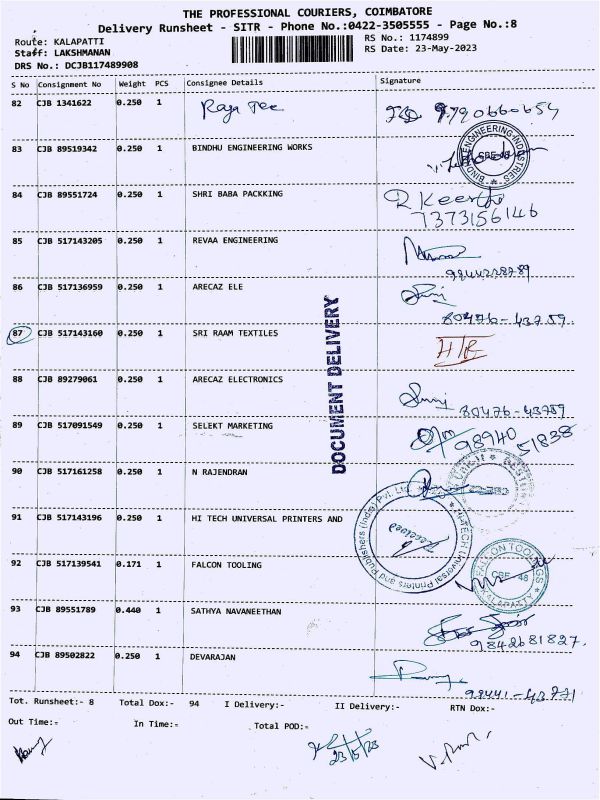 THE PROFESSIONAL COURIERS, COIMBATORE
Delivery Runsheet - SITR - Phone No.:0422-3505555 - Page No.:8
Route: KALAPATTI
RS No.: 1174899
Staff: LAKSHMANAN
RS Date: 23-May-2023
DRS No.: DCJB117489908
S No Consignment No Weight PCS Consignee Details Signature
82 CJB 1341622 0.250 1 Raja Tee 9790660654
83 CJB 89519342 0.250 1 BINDHU ENGINEERING WORKS
BINDHU ENGINEERING INDUSTRIES
84 CJB 89551724 0.250 1 SHRI BABA PACKKING R Keerthi
7373156146
85 CJB 517143205 0.250 1 REVAA ENGINEERING
86 CJB 517136959 0.250 1 ARECAZ ELE
80476-43759
87 CJB 517143160 0.250 1 SRI RAAM TEXTILES
DOCUMENT DELIVERY
88 CJB 89279061 0.250 1 ARECAZ ELECTRONICS
80476-43759
89 CJB 517091549 0.250 1 SELEKT MARKETING 98940 51838
90 CJB 517161258 0.250 1 N RAJENDRAN
91 CJB 517143196 0.250 1 HI TECH UNIVERSAL PRINTERS AND
HI-TECH Universal Printers and Publishers (India) Pvt. Ltd.
Received
92 CJB 517139541 0.171 1 FALCON TOOLING
FALCON TOOLINGS
CBE - 48
KALAPATTY
93 CJB 89551789 0.440 1 SATHYA NAVANEETHAN
9842681827
94 CJB 89502822 0.250 1 DEVARAJAN
98441-43771
Tot. Runsheet:- 8 Total Dox:- 94 I Delivery:- II Delivery:- RTN Dox:-
Out Time:- In Time:- Total POD:-
23/5/23